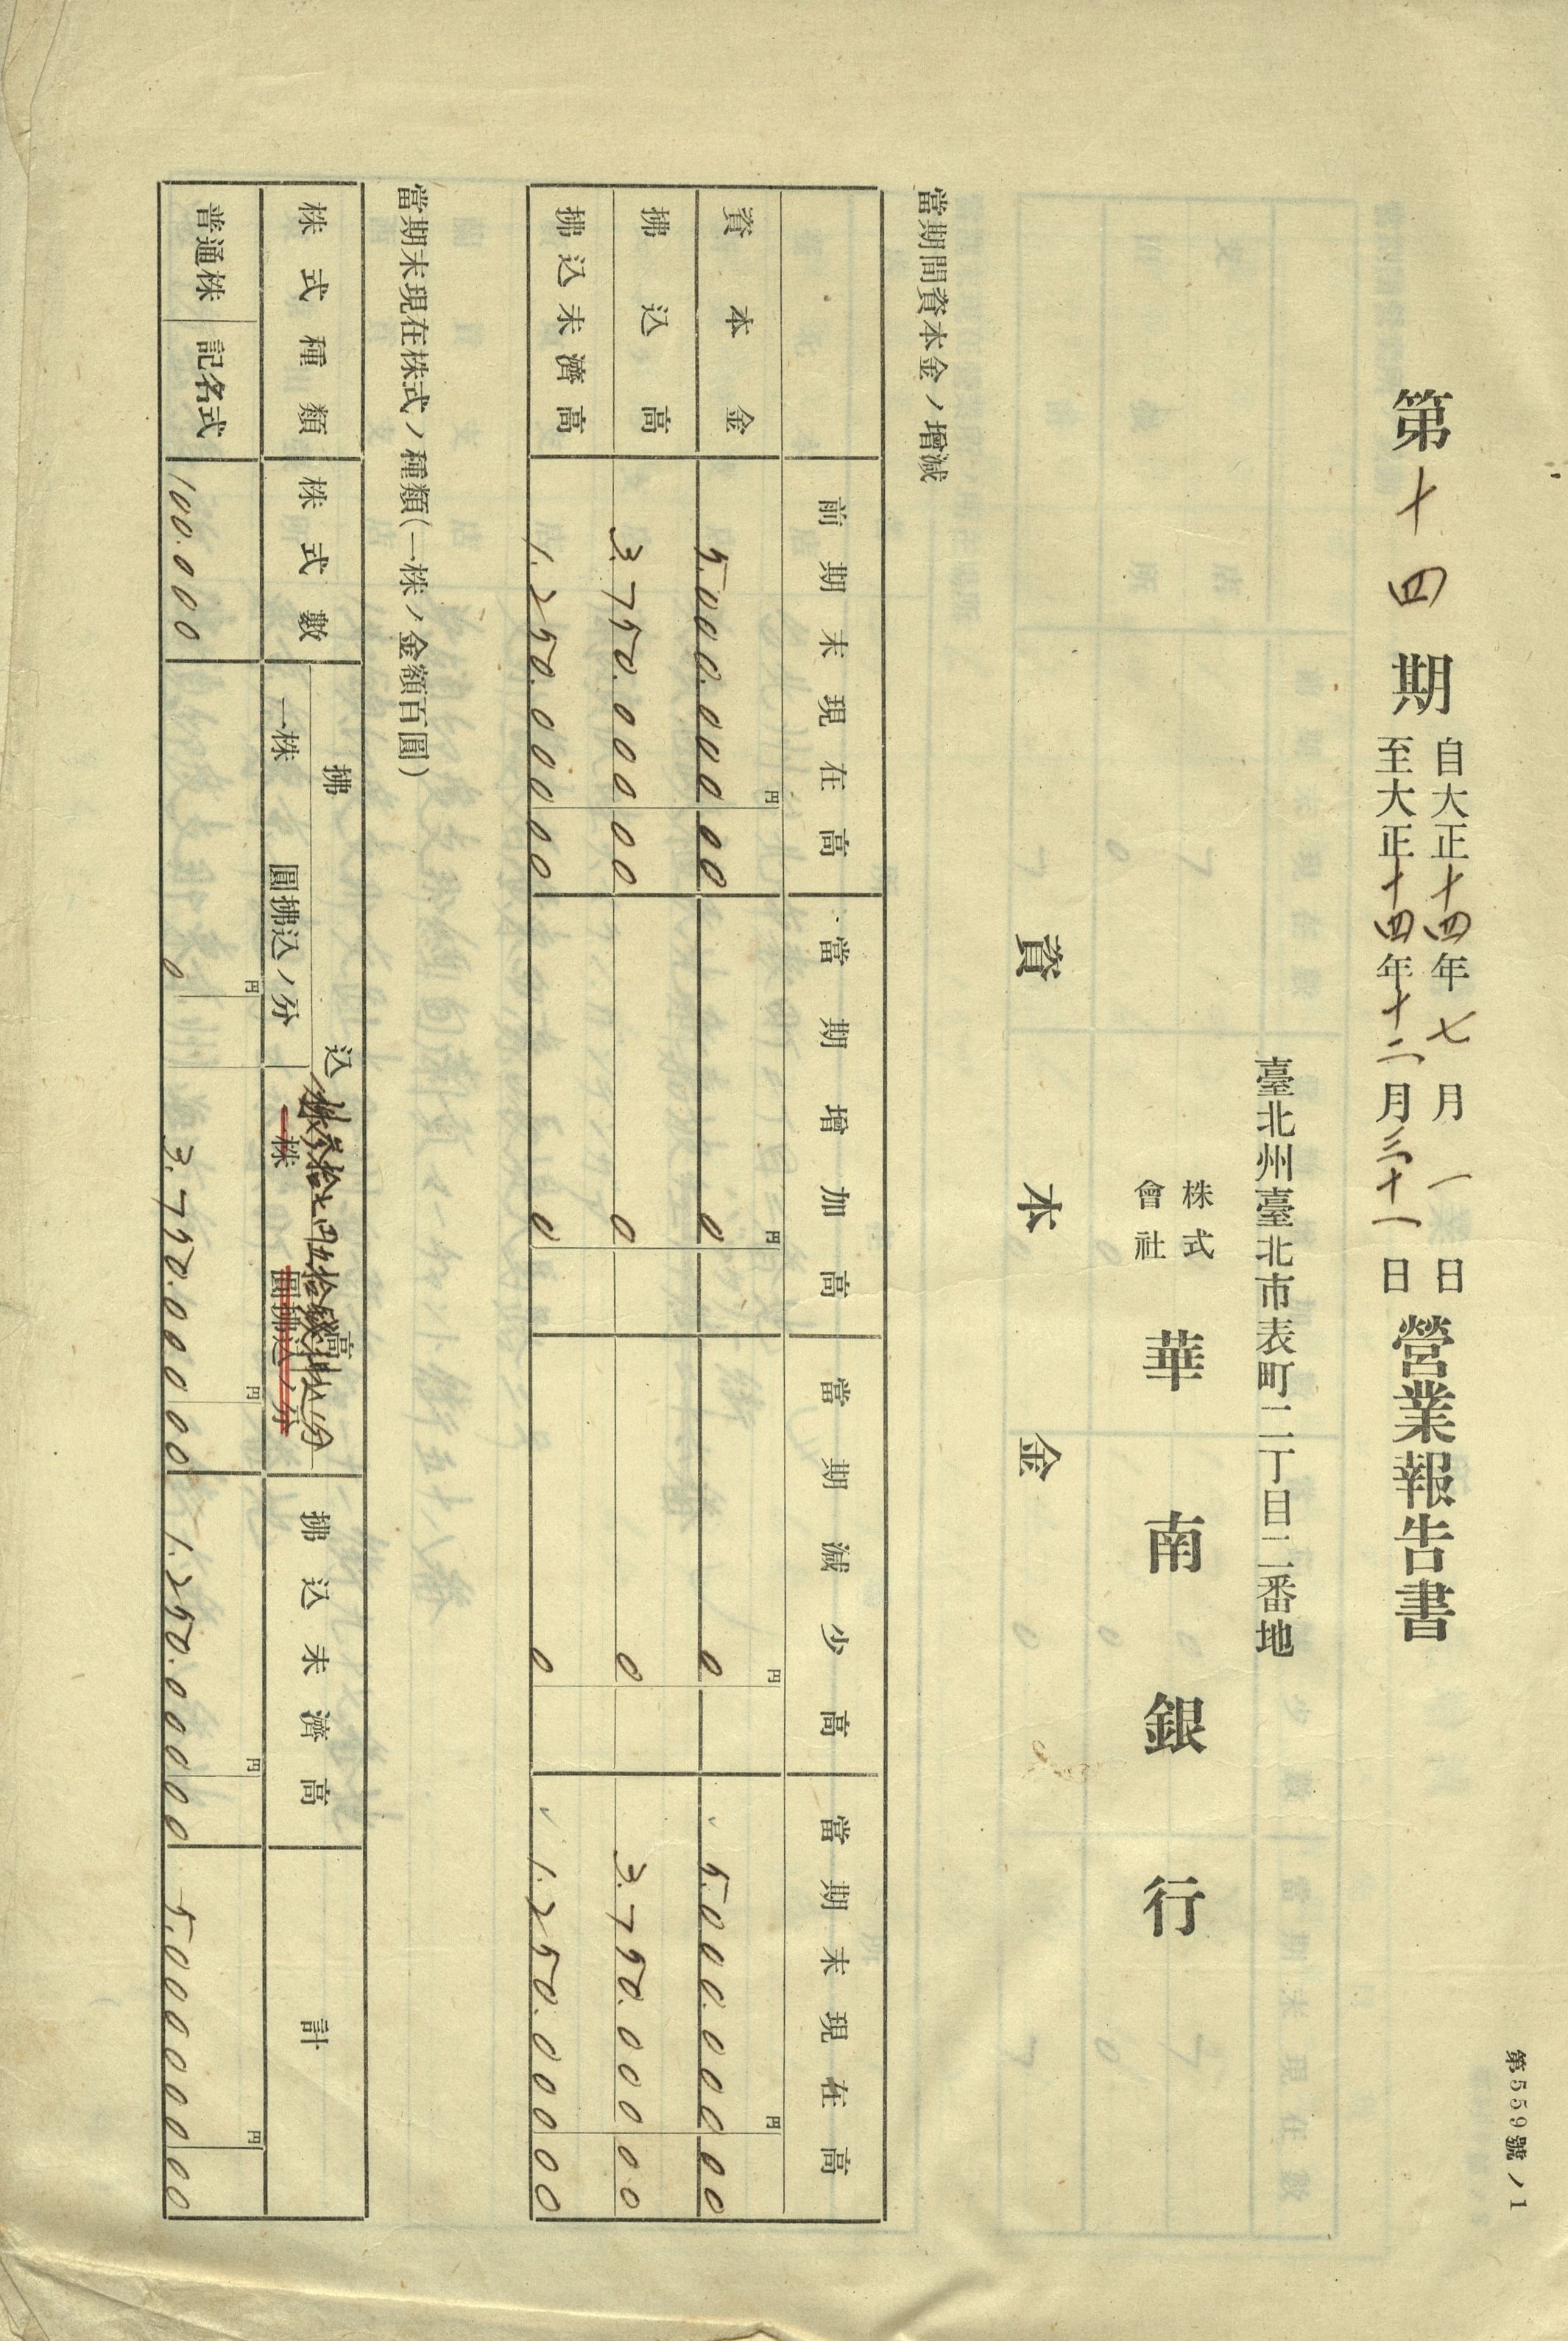 第559號ノ1
第十四期 自大正十四年七月一日 至大正十四年十二月三十一日 營業報告書
臺北州臺北市表町二丁目二番地
株式會社 華南銀行
資本金
當期間資本金ノ增減
前期末現在高 當期增加高 當期減少高 當期末現在高
円 円 円 円
資本金 5.000.000 00 0 0 5.000.000 00
拂込高 3.750.000 00 0 0 3.750.000 00
拂込未濟高 1.250.000 00 0 0 1.250.000 00
當期末現在株式ノ種類(一株ノ金額百圓)
株式種類 株式數 拂込高 拂込未濟高 計
一株 圓拂込ノ分 一株 圓拂込ノ分
一株參拾七円五拾錢拂込ノ分
円 円 円 円
普通株 記名式 100.000 0 3.750.000 00 1.250.000 00 5.000.000 00